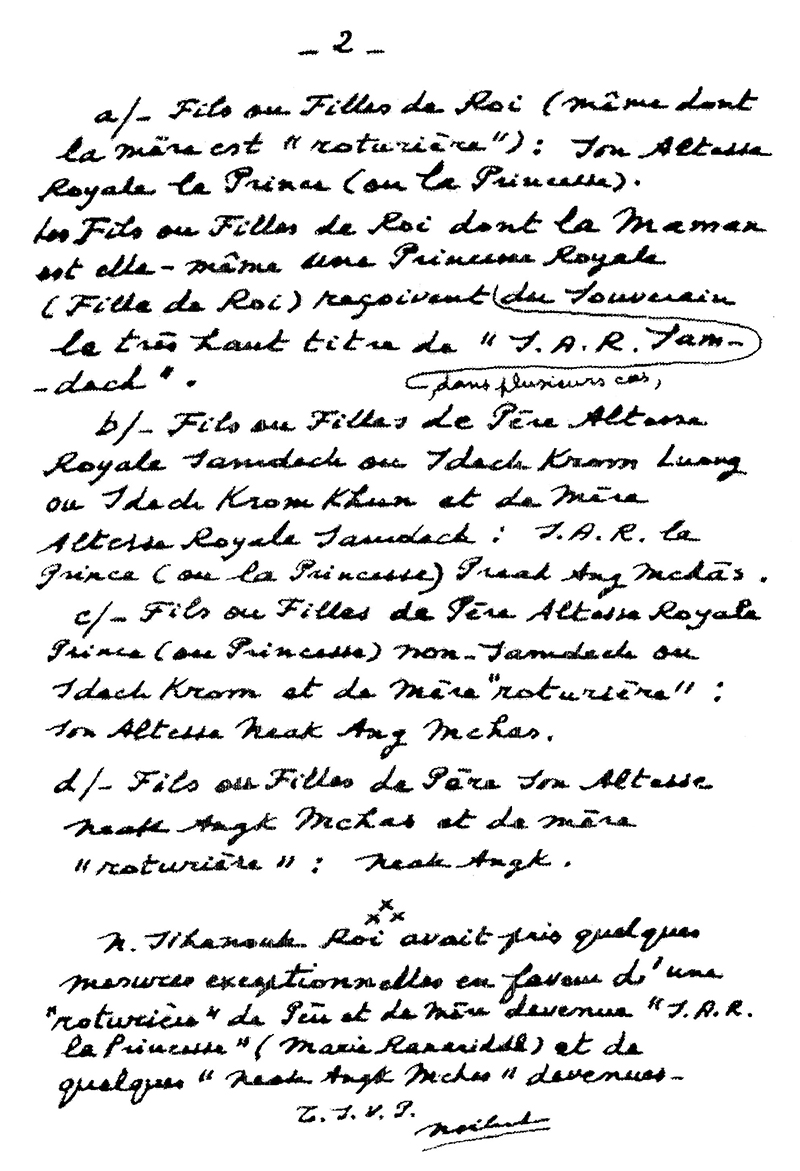 _ 2 _
a/_ Fils ou Filles de Roi (même dont
la mère est "roturière") : Son Altesse
Royale le Prince (ou la Princesse).
Les Fils ou Filles de Roi dont la Maman
est elle-même une Princesse Royale
(Fille de Roi) reçoivent du Souverain
le très haut titre de "S.A.R. Sam-
-dech".
, dans plusieurs cas,
b/_ Fils ou Filles de Père Altesse
Royale Samdech ou Sdech Krom Luong
ou Sdech Krom Khun et de Mère
Altesse Royale Samdech : S.A.R. le
Prince (ou la Princesse) Preah Ang Mchās.
c/_ Fils ou Filles de Père Altesse Royale
Prince (ou Princesse) non-Samdech ou
Sdech Krom et de Mère "roturière" :
Son Altesse Neak Ang Mchas.
d/_ Fils ou Filles de Père Son Altesse
Neak Angk Mchas et de mère
"roturière" : Neak Angk.
x x x
N. Sihanouk Roi avait pris quelques
mesures exceptionnelles en faveur d'une
"roturière" de Père et de Mère devenue "S.A.R.
la Princesse" (Marie Ranariddh) et de
quelques "Neak Angk Mchas" devenues-
T.S.V.P.